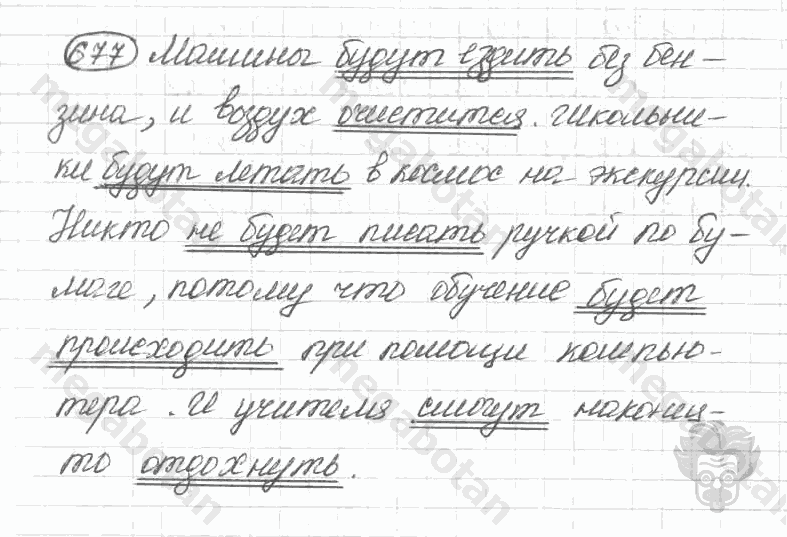 677 Машины будут ездить без бен-
зина, и воздух очистится. Школьни-
ки будут летать в космос на экскурсии.
Никто не будет писать ручкой по бу-
маге, потому что обучение будет
происходить при помощи компью-
тера. И учителя смогут наконец-
то отдохнуть.
megabotan
megabotan
megabotan
megabotan
megabotan
megabotan